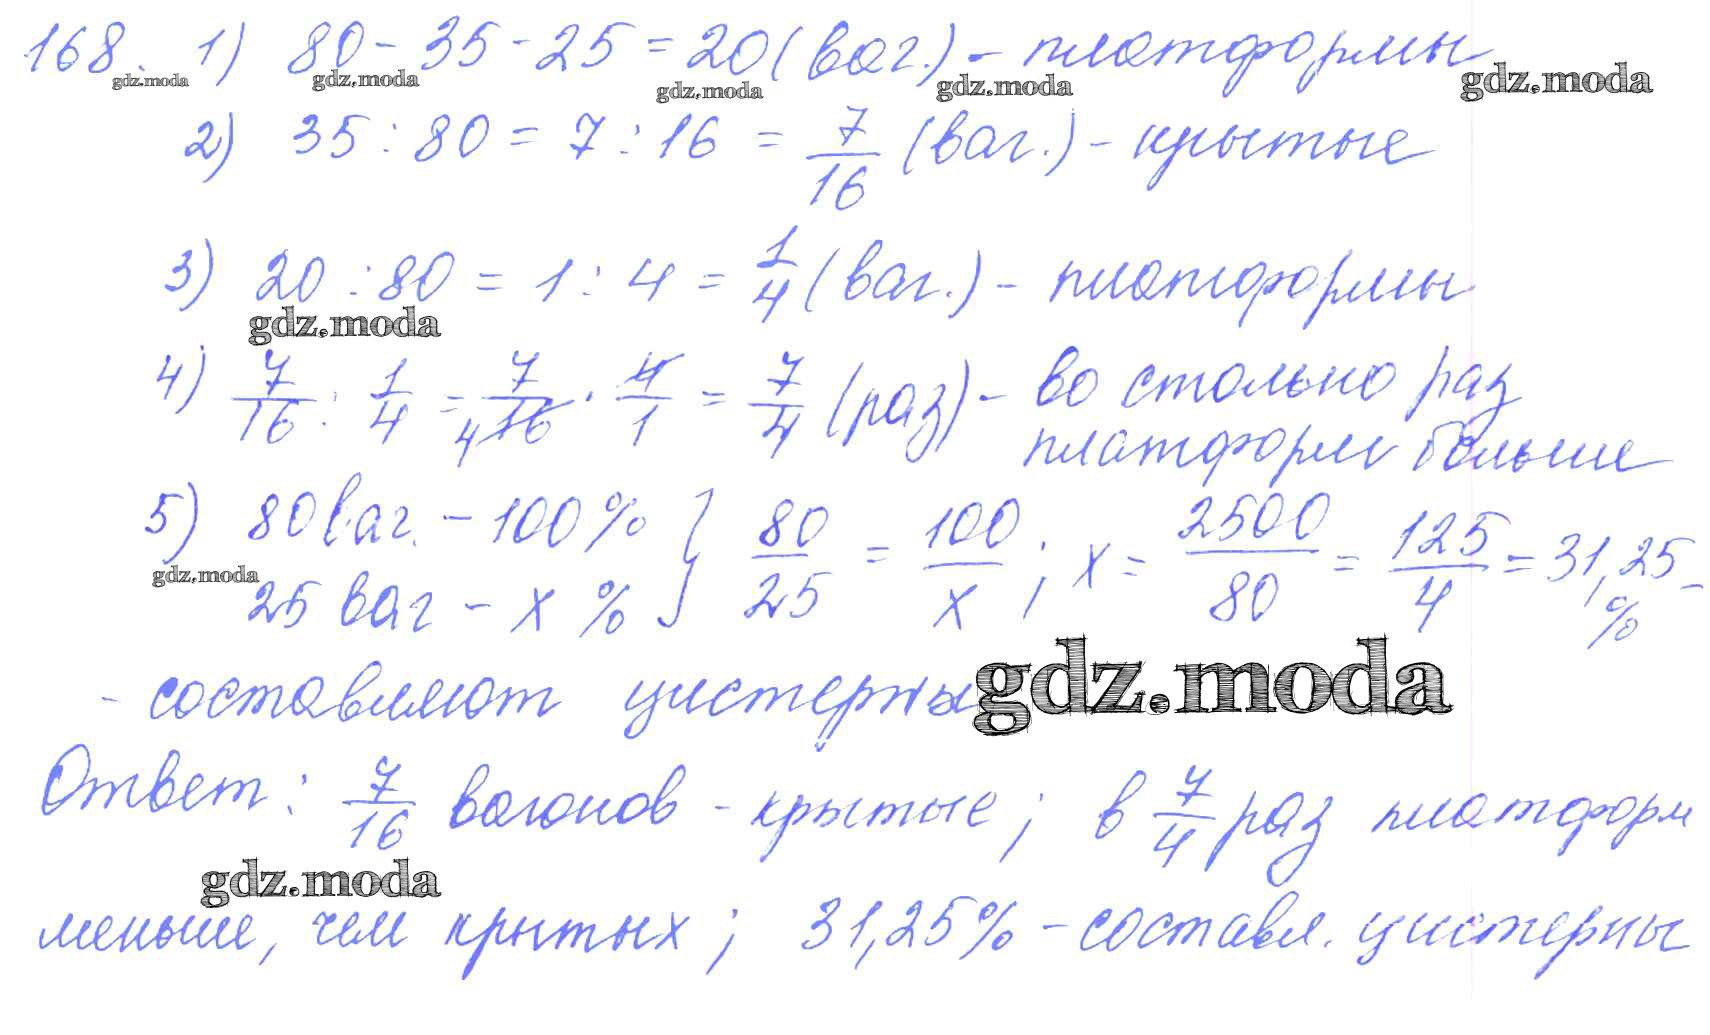 168. 1) 80 - 35 - 25 = 20 (ваг.) - платформы
gdz.moda gdz.moda gdz.moda gdz.moda gdz.moda
2) 35 : 80 = 7 : 16 = 7/16 (ваг.) - крытые
3) 20 : 80 = 1 : 4 = 1/4 (ваг.) - платформы
gdz.moda
4) 7/16 : 1/4 = 7/16 4 · 4/1 = 7/4 (раз) - во столько раз
платформ больше
5) 80 ваг. - 100 % } 80/25 = 100/x ; x = 2500/80 = 125/4 = 31,25 % -
gdz.moda
25 ваг - x %
- составляют цистерны
gdz.moda
Ответ: 7/16 вагонов - крытые; в 7/4 раз платформ
gdz.moda
меньше, чем крытых; 31,25% - составл. цистерны